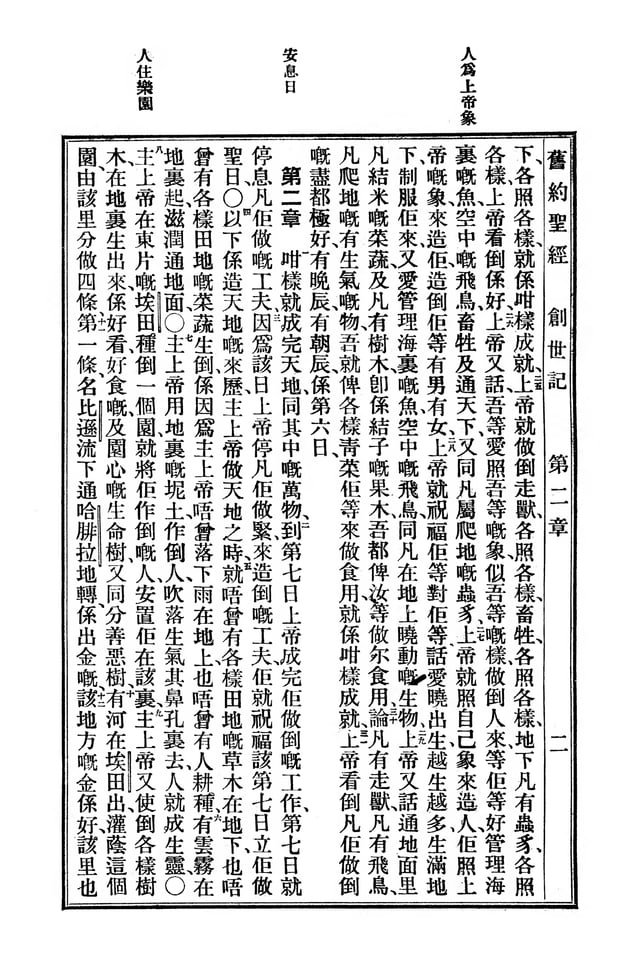 舊約聖經 創世記 第二章 二
人爲上帝象
安息日
人住樂園
下、各照各樣、就係咁樣成就、二五上帝就做倒走獸、各照各樣、畜牲、各照各樣、地下凡有蟲豸、各照
各樣、上帝看倒係好、二六上帝又話、吾等愛照吾等嘅象、似吾等嘅樣做倒人來、等佢等好管理海
裏嘅魚、空中嘅飛鳥、畜牲、及通天下、又同凡屬爬地嘅蟲豸、二七上帝就照自己象來造人、佢照上
帝嘅象來造佢、造倒佢等有男有女、二八上帝就祝福佢等、對佢等話、愛曉出生、越生越多、生滿地
下、制服佢來、又愛管理海裏嘅魚、空中嘅飛鳥、同凡在地上曉動嘅生物、二九上帝又話、通地面里
凡結米嘅菜蔬、及凡有樹木、卽係結子嘅果木、吾都俾汝等做尔食用、三十論凡有走獸、凡有飛鳥、
凡爬地嘅有生氣嘅物、吾就俾各樣青菜佢等來做食用、就係咁樣成就、三一上帝看倒凡佢做倒
嘅、盡都極好、有晚辰、有朝辰、係第六日、
第二章 一咁樣就成完天地、同其中嘅萬物、二到第七日、上帝成完佢做倒嘅工作、第七日就
停息凡佢做嘅工夫、三因爲該日上帝停凡佢做緊來造倒嘅工夫、佢就祝福該第七日、立佢做
聖日、〇四以下係造天地嘅來歷、主上帝做天地之時、五就唔曾有各樣田地嘅草木在地下、也唔
曾有各樣田地嘅菜蔬生倒、係因爲主上帝唔曾落下雨在地上、也唔曾有人耕種、六有雲霧在
地裏起、滋潤通地面、〇七主上帝用地裏嘅坭土作倒人、吹落生氣其鼻孔裏去、人就成生靈、〇
八主上帝在東片嘅埃田種倒一個園、就將佢作倒嘅人安置佢在該裏、九主上帝又使倒各樣樹
木、在地裏生出來、係好看好食嘅、及園心嘅生命樹、又同分善惡樹、十有河在埃田出、灌蔭這個
園、由該里分做四條、十一第一條名比遜、流下通哈腓拉地轉、係出金嘅、十二該地方嘅金係好、該里也